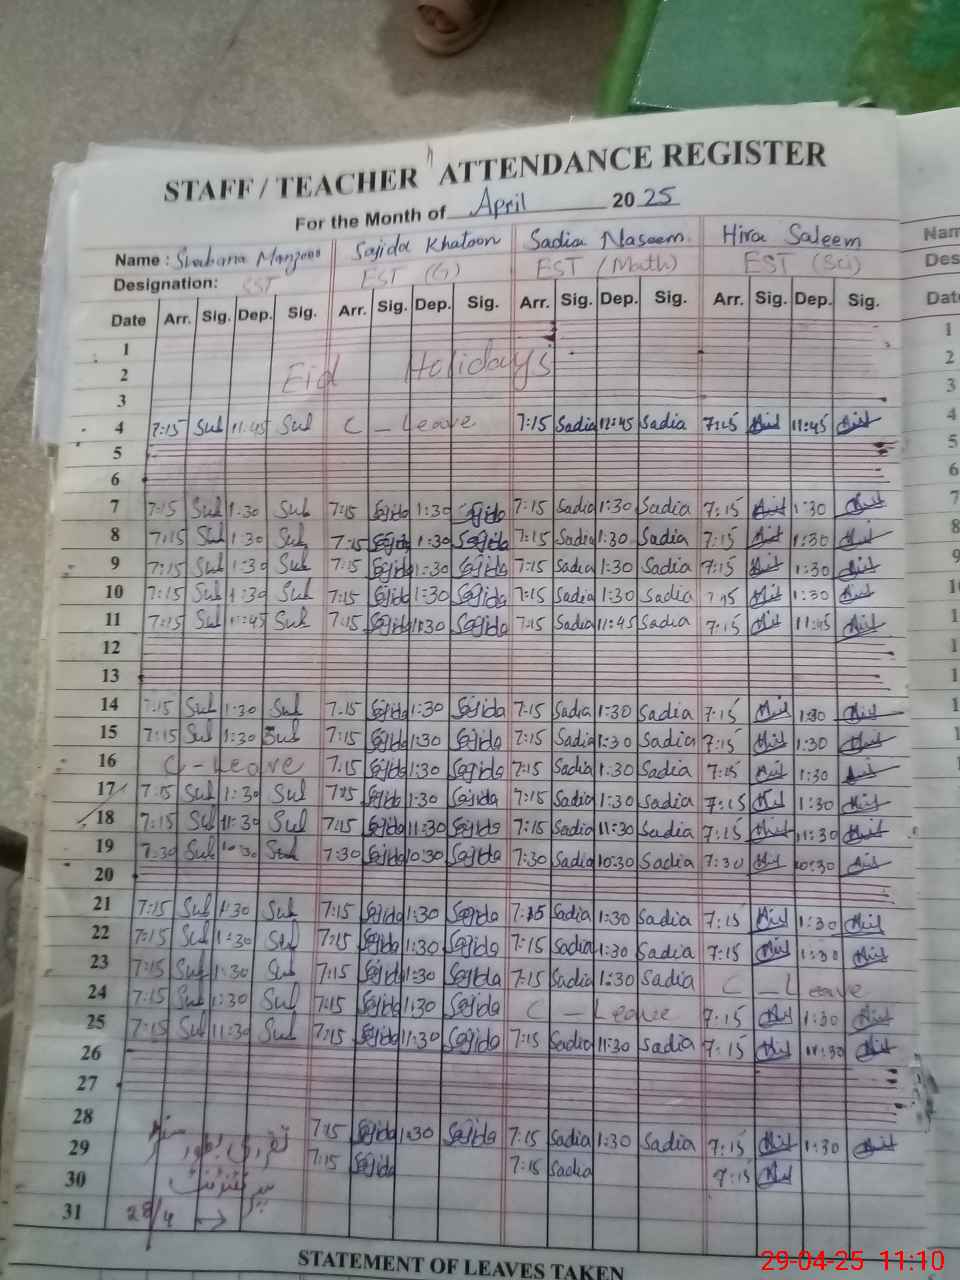 STAFF / TEACHER ATTENDANCE REGISTER
For the Month of April 2025
Name : Shabana Manzoor Sajida Khatoon Sadia Naseem Hira Saleem
Designation: SST EST (G) EST (Math) EST (Sci)
Date Arr. Sig. Dep. Sig. Arr. Sig. Dep. Sig. Arr. Sig. Dep. Sig. Arr. Sig. Dep. Sig.
1
2 Eid Holidays
3
4 7:15 Sul 11:45 Sul C - Leave 7:15 Sadia 11:45 Sadia 7:15 11:45
5
6
7 7:15 Sul 1:30 Sul 7:15 Sajida 1:30 Sajida 7:15 Sadia 1:30 Sadia 7:15 1:30
8 7:15 Sul 1:30 Sul 7:15 Sajida 1:30 Sajida 7:15 Sadia 1:30 Sadia 7:15 1:30
9 7:15 Sul 1:30 Sul 7:15 Sajida 1:30 Sajida 7:15 Sadia 1:30 Sadia 7:15 1:30
10 7:15 Sul 1:30 Sul 7:15 Sajida 1:30 Sajida 7:15 Sadia 1:30 Sadia 7:15 1:30
11 7:15 Sul 11:45 Sul 7:15 Sajida 11:30 Sajida 7:15 Sadia 11:45 Sadia 7:15 11:45
12
13
14 7:15 Sul 1:30 Sul 7:15 Sajida 1:30 Sajida 7:15 Sadia 1:30 Sadia 7:15 1:30
15 7:15 Sul 1:30 Sul 7:15 Sajida 1:30 Sajida 7:15 Sadia 1:30 Sadia 7:15 1:30
16 C - Leave 7:15 Sajida 1:30 Sajida 7:15 Sadia 1:30 Sadia 7:15 1:30
17 7:15 Sul 1:30 Sul 7:15 Sajida 1:30 Sajida 7:15 Sadia 1:30 Sadia 7:15 1:30
18 7:15 Sul 11:30 Sul 7:15 Sajida 11:30 Sajida 7:15 Sadia 11:30 Sadia 7:15 11:30
19 7:30 Sul 10:30 Sul 7:30 Sajida 10:30 Sajida 7:30 Sadia 10:30 Sadia 7:30 10:30
20
21 7:15 Sul 1:30 Sul 7:15 Sajida 1:30 Sajida 7:15 Sadia 1:30 Sadia 7:15 1:30
22 7:15 Sul 1:30 Sul 7:15 Sajida 1:30 Sajida 7:15 Sadia 1:30 Sadia 7:15 1:30
23 7:15 Sul 1:30 Sul 7:15 Sajida 1:30 Sajida 7:15 Sadia 1:30 Sadia C - Leave
24 7:15 Sul 1:30 Sul 7:15 Sajida 1:30 Sajida C - Leave 7:15 1:30
25 7:15 Sul 11:30 Sul 7:15 Sajida 11:30 Sajida 7:15 Sadia 11:30 Sadia 7:15 11:30
26
27
28 7:15 Sajida 1:30 Sajida 7:15 Sadia 1:30 Sadia 7:15 1:30
29 تقرری بطور 7:15 Sajida 7:15 Sadia 7:15
30
31 28/4
STATEMENT OF LEAVES TAKEN
29-04-25 11:10